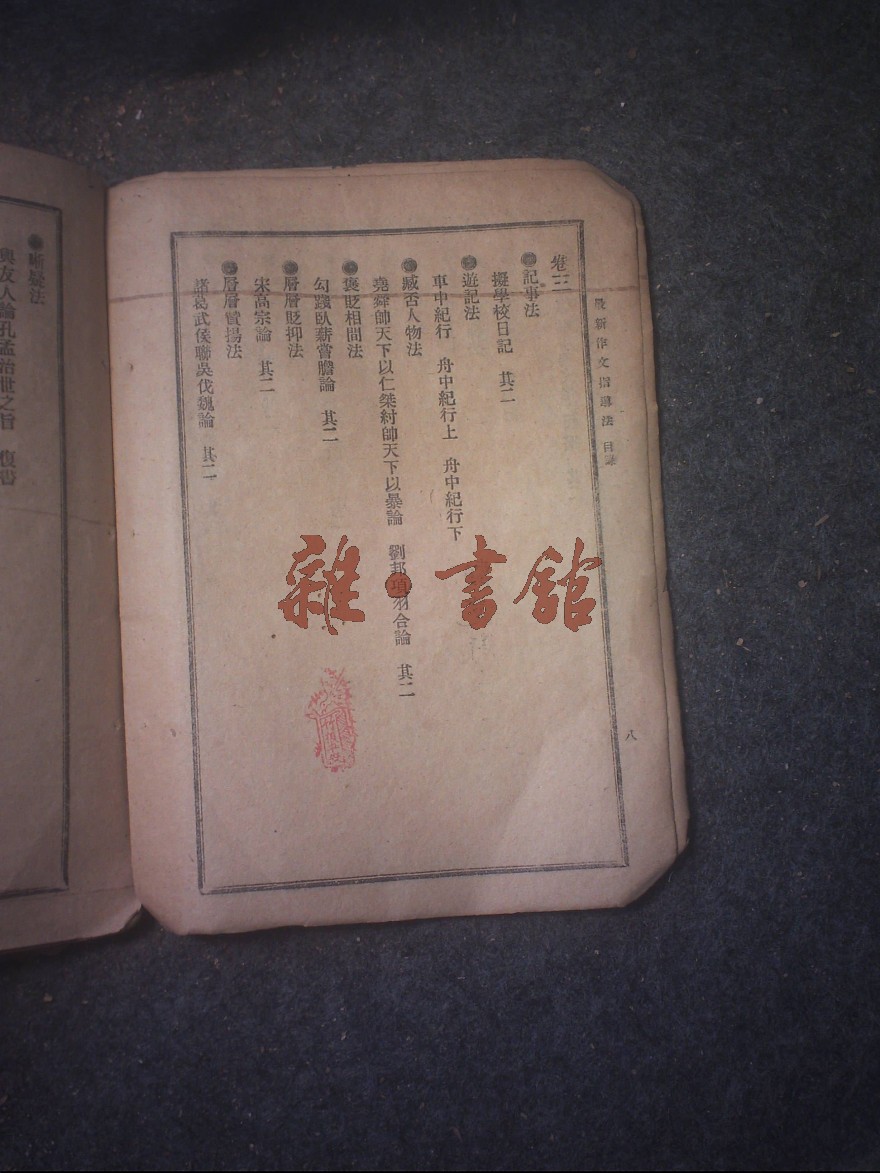 最新作文指導法 目錄
八
卷三
●記事法
擬學校日記 其二
●遊記法
車中紀行 舟中紀行上 舟中紀行下
●臧否人物法
堯舜帥天下以仁桀紂帥天下以暴論 劉邦項羽合論 其二
●褒貶相間法
勾踐臥薪嘗膽論 其二
●層層貶抑法
宋高宗論 其二
●層層贊揚法
諸葛武侯聯吳伐魏論 其二
●斷疑法
與友人論孔孟治世之旨 復書
雜·書館